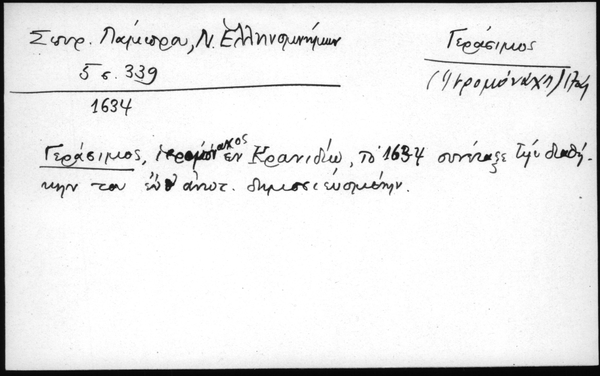 Σπυρ. Λάμπρου, Ν. Ἑλληνομνήμων
5 σ. 339
1634
Γεράσιμος
(Ἱερομόναχος)
Γεράσιμος, ἱερομόναχος ἐν Κρανιδίῳ, τὸ 1634 συνέταξε τὴν διαθή-
κην του ἐν ἀνωτ. δημοσιευομένην.